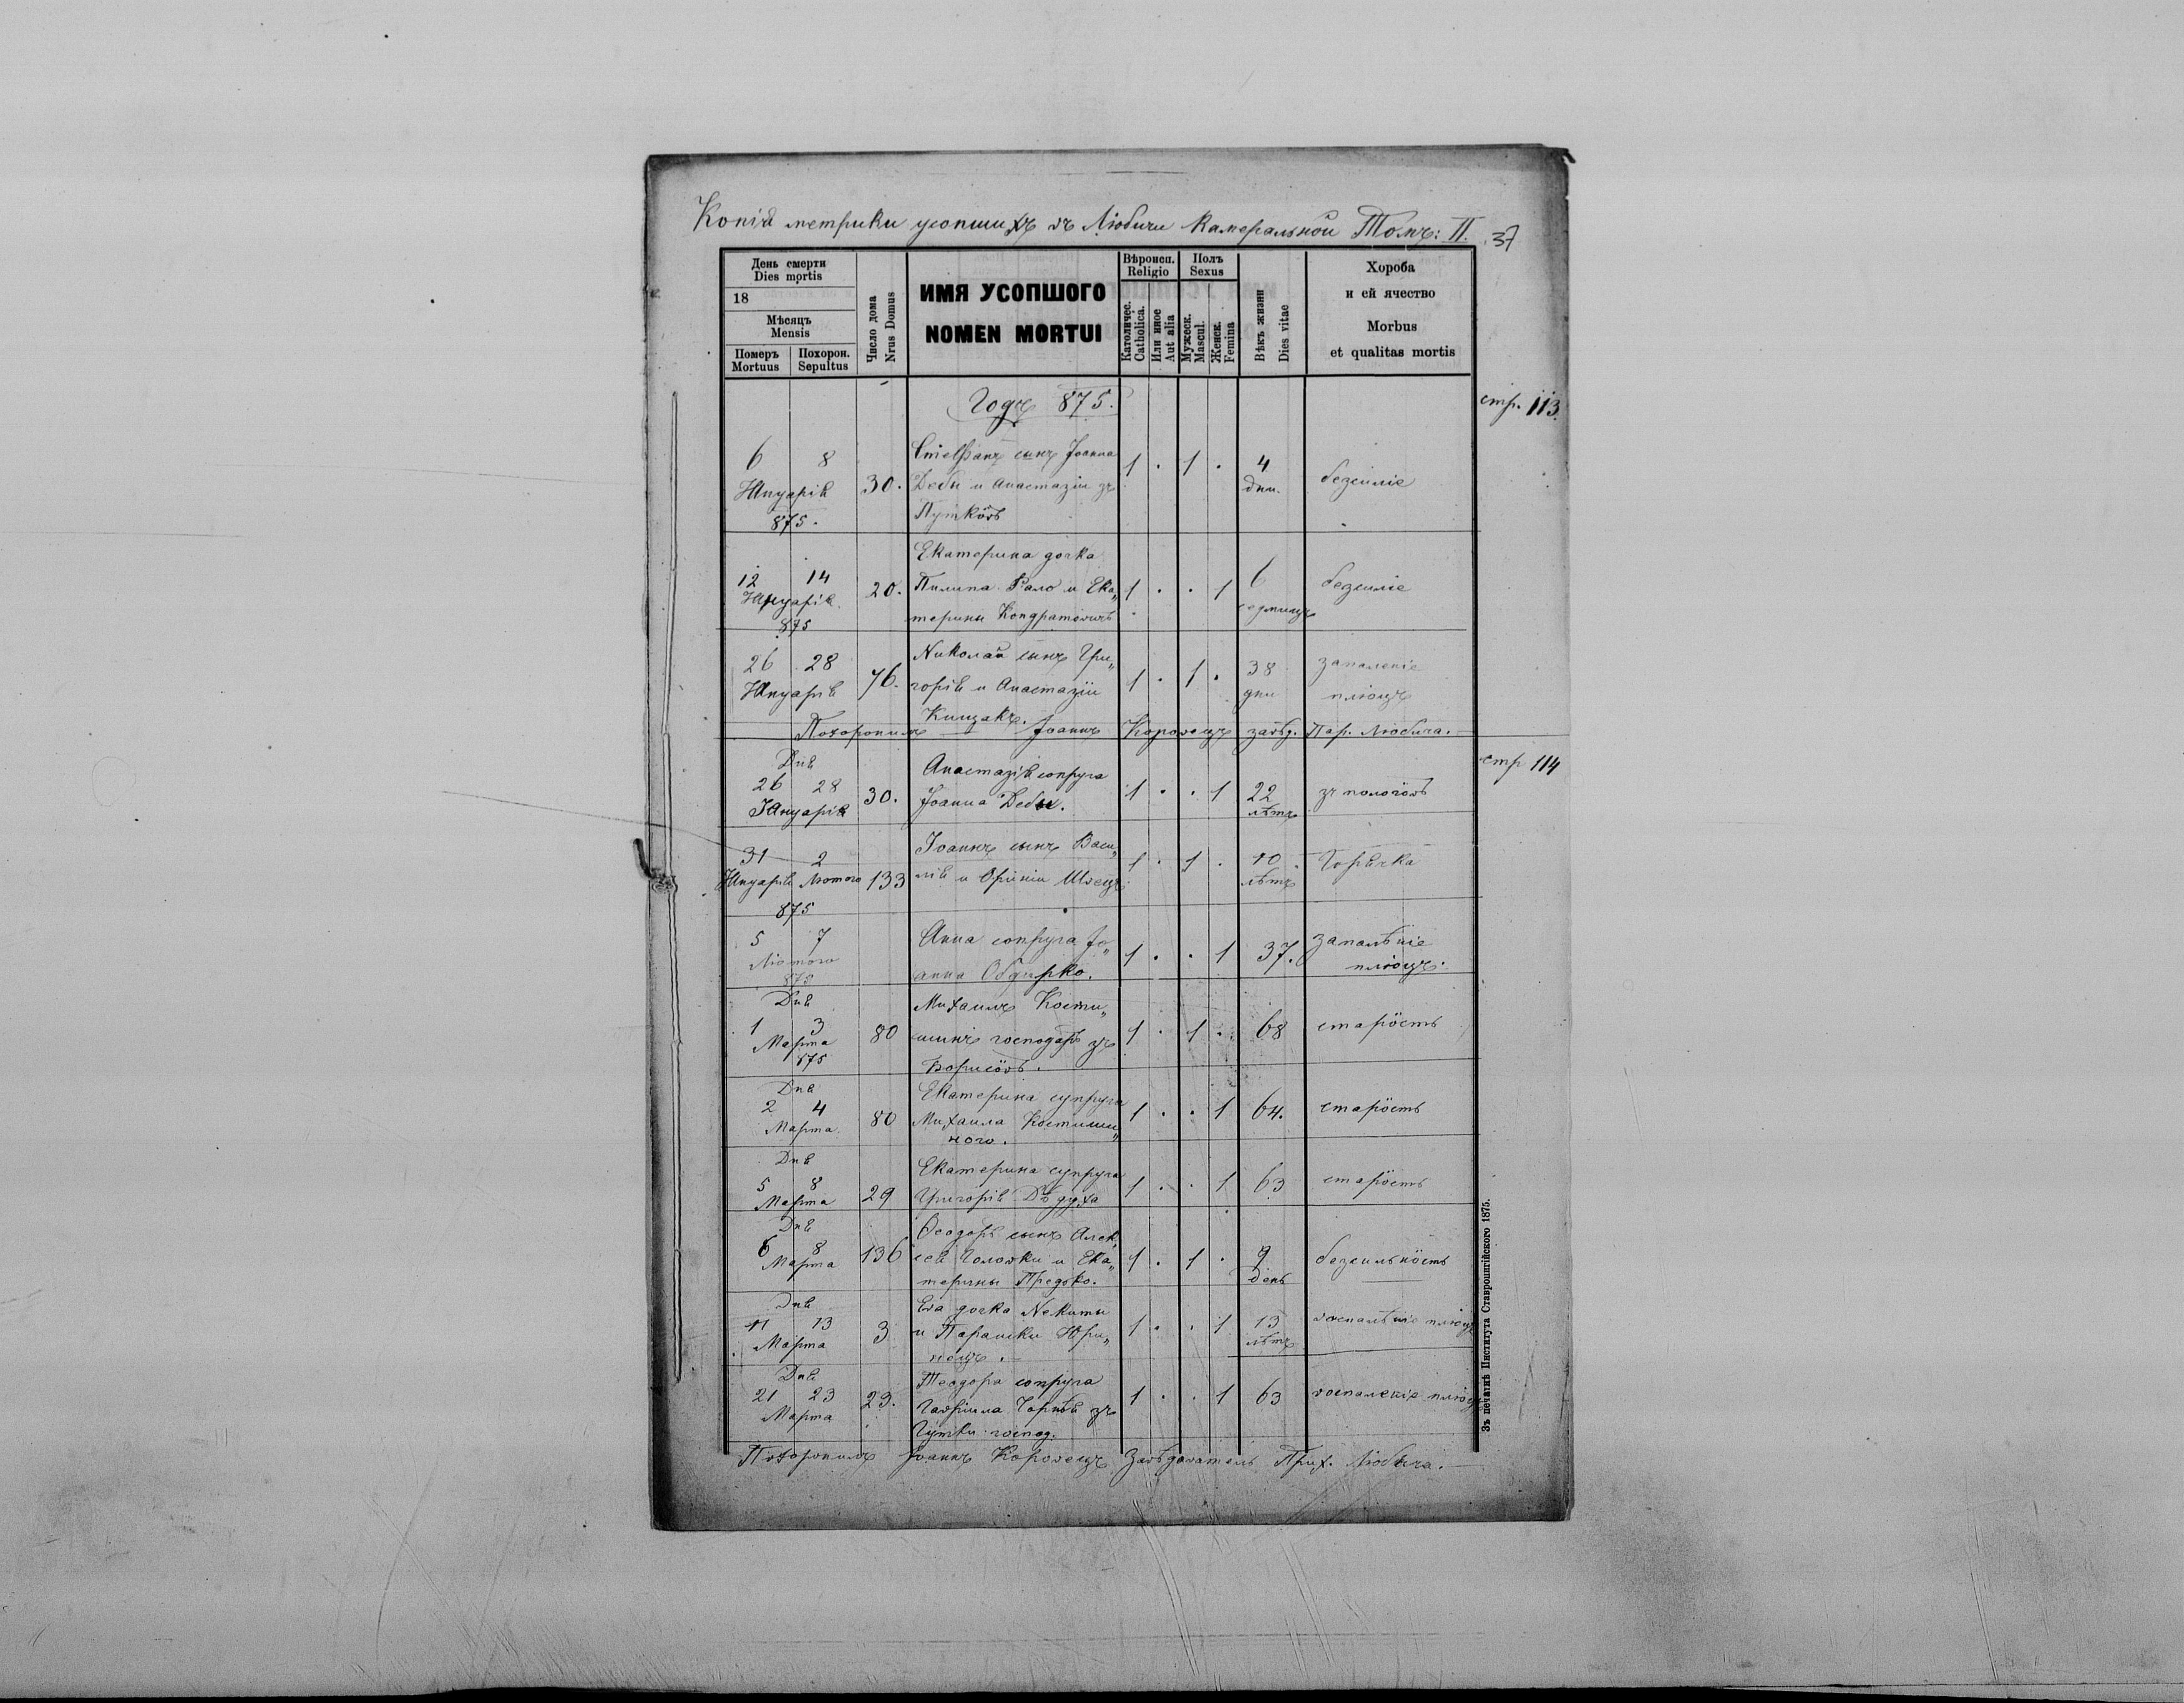 Копія метрики усопшихъ въ Любичи Камеральной Томъ: II.
37
День смерти
Dies mortis
18
Мѣсяцъ
Mensis
Померъ
Mortuus
Похорон.
Sepultus
Число дома
Nrus Domus
ИМЯ УСОПШОГО
NOMEN MORTUI
Вѣроисп.
Religio
Католичес.
Catholica.
Или иное
Aut alia
Полъ
Sexus
Мужеск.
Mascul.
Женск.
Femina
Вѣкъ жизни
Dies vitae
Хороба
и ей ячество
Morbus
et qualitas mortis
Годъ 875.
стр. 113.
6 8
Януарія
875.
30.
Стефанъ сынъ Іоанна
Дебы и Анастазіи зъ
Путковъ
1 . 1 .
4
дни.
безсиліе
12 14
Януарія
875
20.
Екатерина дочка
Пилипа Рало и Ека„
терины Кондратовичъ
1 . . 1
6
седмицъ
безсиліе
26 28
Януарія
76.
Николай сынъ Гри„
горія и Анастазіи
Кищакъ.
1 . 1 .
38
дни
запаленіе
плюцъ
Похоронилъ Іоаннъ Коровецъ завѣд. Пар. Любича.
стр 114
Дня
26 28
Януарія
30.
Анастазія сопруга
Іоанна Дебы.
1 . . 1
22
лѣтъ
зъ пологовъ
31 2
Януарія Лютого
875
133
Іоаннъ сынъ Васи„
лія и Орини Швецъ
1 . 1 .
10
лѣтъ
Горячка
5 7
Лютого
875
Анна сопруга Іо„
анна Обдирко.
1 . . 1
37.
запалѣніе
плюцъ.
Дня
1 3
Марта
875
80
Михаилъ Кости„
шинъ господарь зъ
Борисовъ.
1 . 1 .
68
старость
Дня
2 4
Марта
80
Екатерина супруга
Михаила Костиши„
ного.
1 . . 1
64.
старость
Дня
5 8
Марта
29
Екатерина супруга
Григорія Дѣдуха
1 . . 1
63
старость
Дня
6 8
Марта
136
Ѳеодоръ сынъ Алек„
сея Головки и Ека„
терины Предко.
1 . 1 .
9
день
безсильность
Дня
11 13
Марта
3
Ева дочка Никиты
и Параски Юри„
нецъ.
1 . . 1
13
лѣтъ
воспалѣніе плюцъ
Дня
21 23
Марта
29.
Теодора сопруга
Гавріила Чорнѣй зъ
Гутки господ.
1 . . 1
63
воспаленіе плюцъ
Похоронилъ Іоаннъ Коровецъ Завѣдователь Прих. Любича.
Зъ печатнѣ Института Ставропигійского 1875.